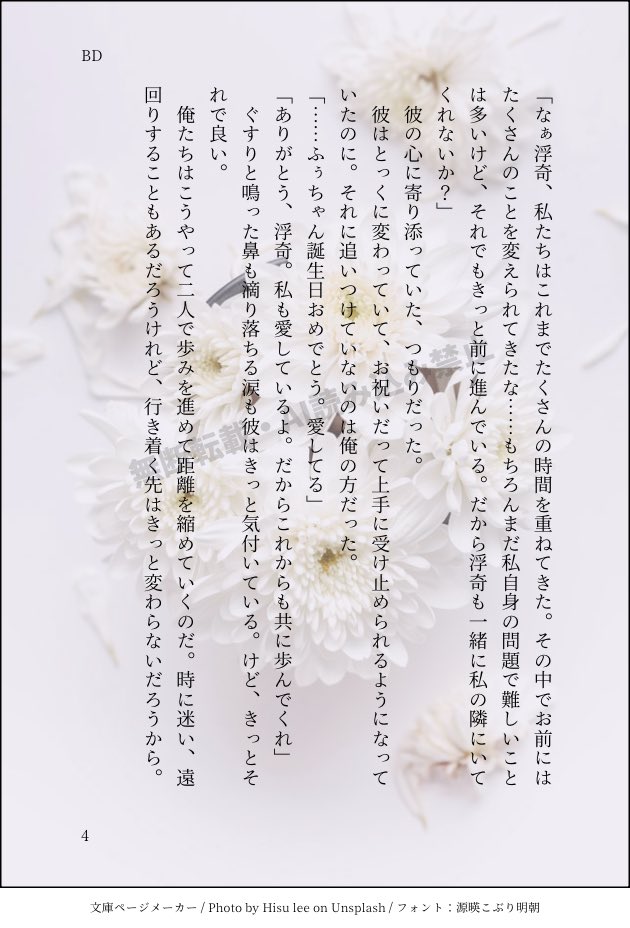 BD
「なぁ浮奇、私たちはこれまでたくさんの時間を重ねてきた。その中でお前には
たくさんのことを変えられてきたな……もちろんまだ私自身の問題で難しいこと
は多いけど、それでもきっと前に進んでいる。だから浮奇も一緒に私の隣にいて
くれないか？」
彼の心に寄り添っていた、つもりだった。
彼はとっくに変わっていて、お祝いだって上手に受け止められるようになって
いたのに。それに追いつけていないのは俺の方だった。
「……ふぅちゃん誕生日おめでとう。愛してる」
「ありがとう、浮奇。私も愛しているよ。だからこれからも共に歩んでくれ」
ぐすりと鳴った鼻も滴り落ちる涙も彼はきっと気付いている。けど、きっとそ
れで良い。
俺たちはこうやって二人で歩みを進めて距離を縮めていくのだ。時に迷い、遠
回りすることもあるだろうけれど、行き着く先はきっと変わらないだろうから。
無断転載・AI読み込み禁止
4
文庫ページメーカー / Photo by Hisu lee on Unsplash / フォント：源暎こぶり明朝